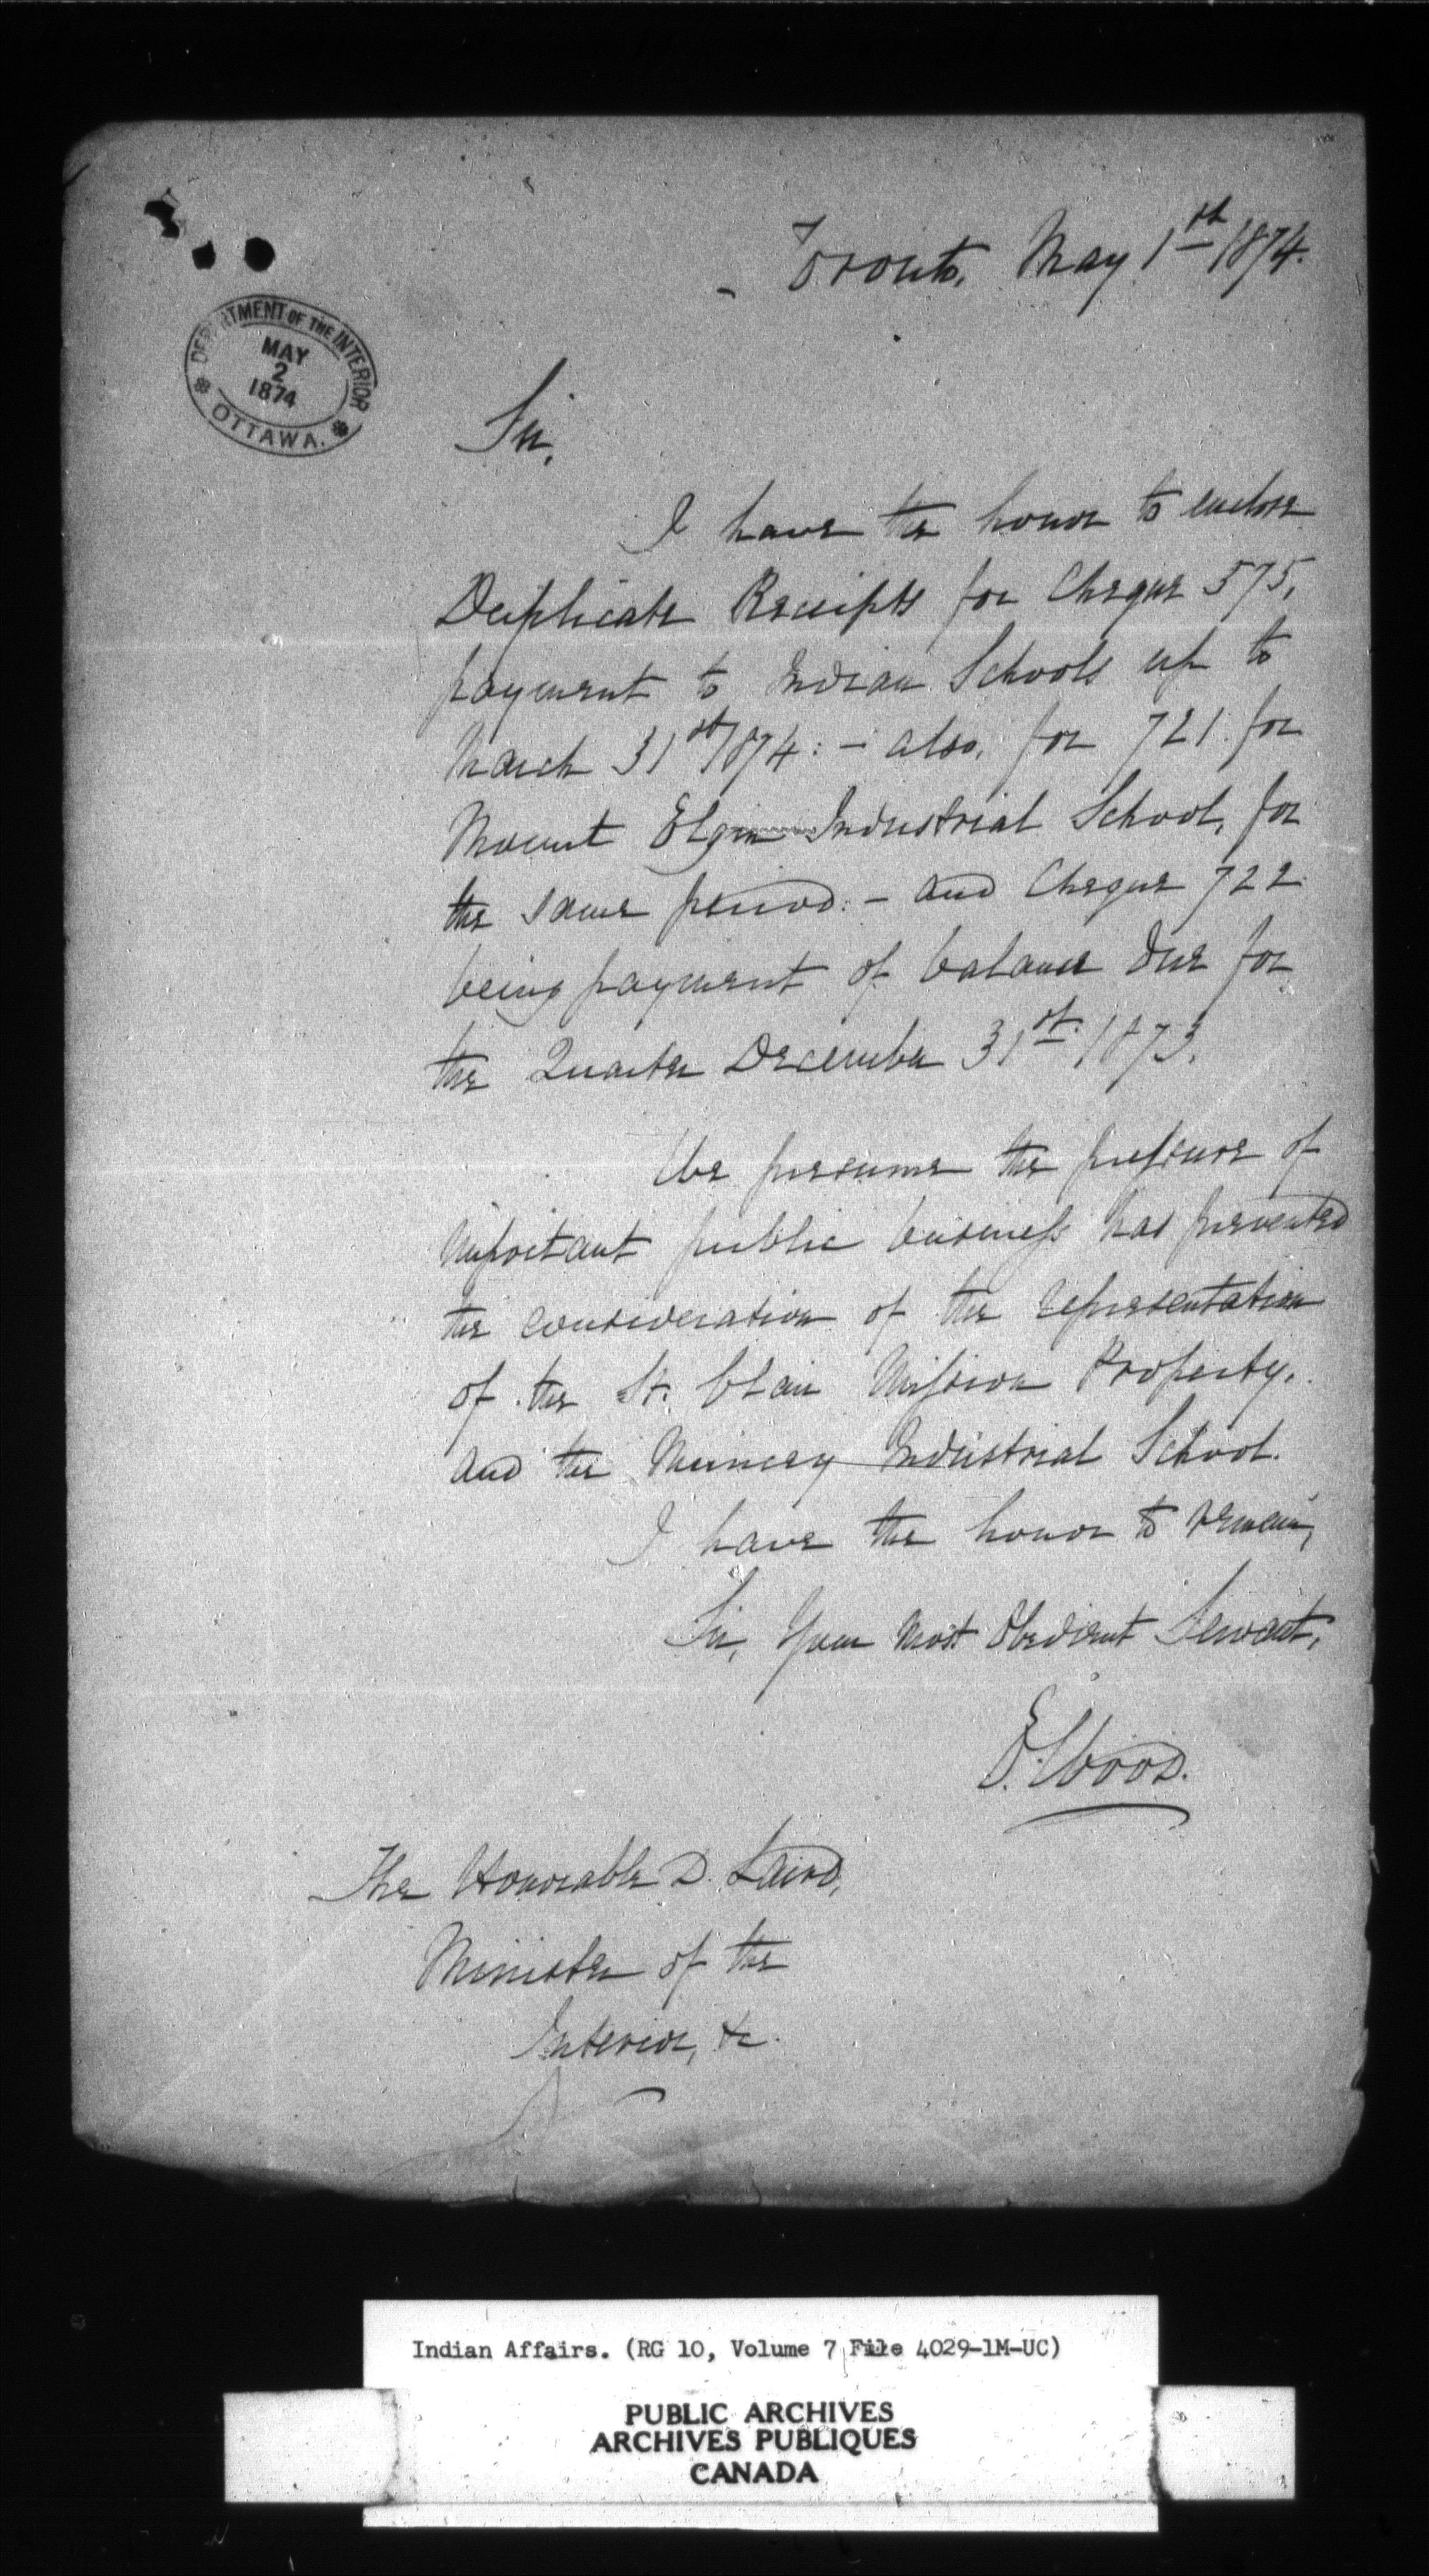 Toronto, May 1st 1874.
DEPARTMENT OF THE INTERIOR
MAY
2
1874
OTTAWA.
Sir,
I have the honor to enclose
Duplicate Receipts for Cheque 575,
payment to Indian Schools up to
March 31st/874: - also, for 721 for
Mount Elgin Industrial School, for
the same period: - and Cheque 722
being payment of balance due for
the Quarter December 31st 1873.
We presume the pressure of
important public business has prevented
the consideration of the representation
of the St. Clair Mission Property,
and the Muncey Industrial School.
I have the honor to remain,
Sir, Your most Obedient Servant,
E. Wood.
The Honorable D. Laird,
Minister of the
Interior, &c.
Indian Affairs. (RG 10, Volume 7 File 4029-1M-UC)
PUBLIC ARCHIVES
ARCHIVES PUBLIQUES
CANADA